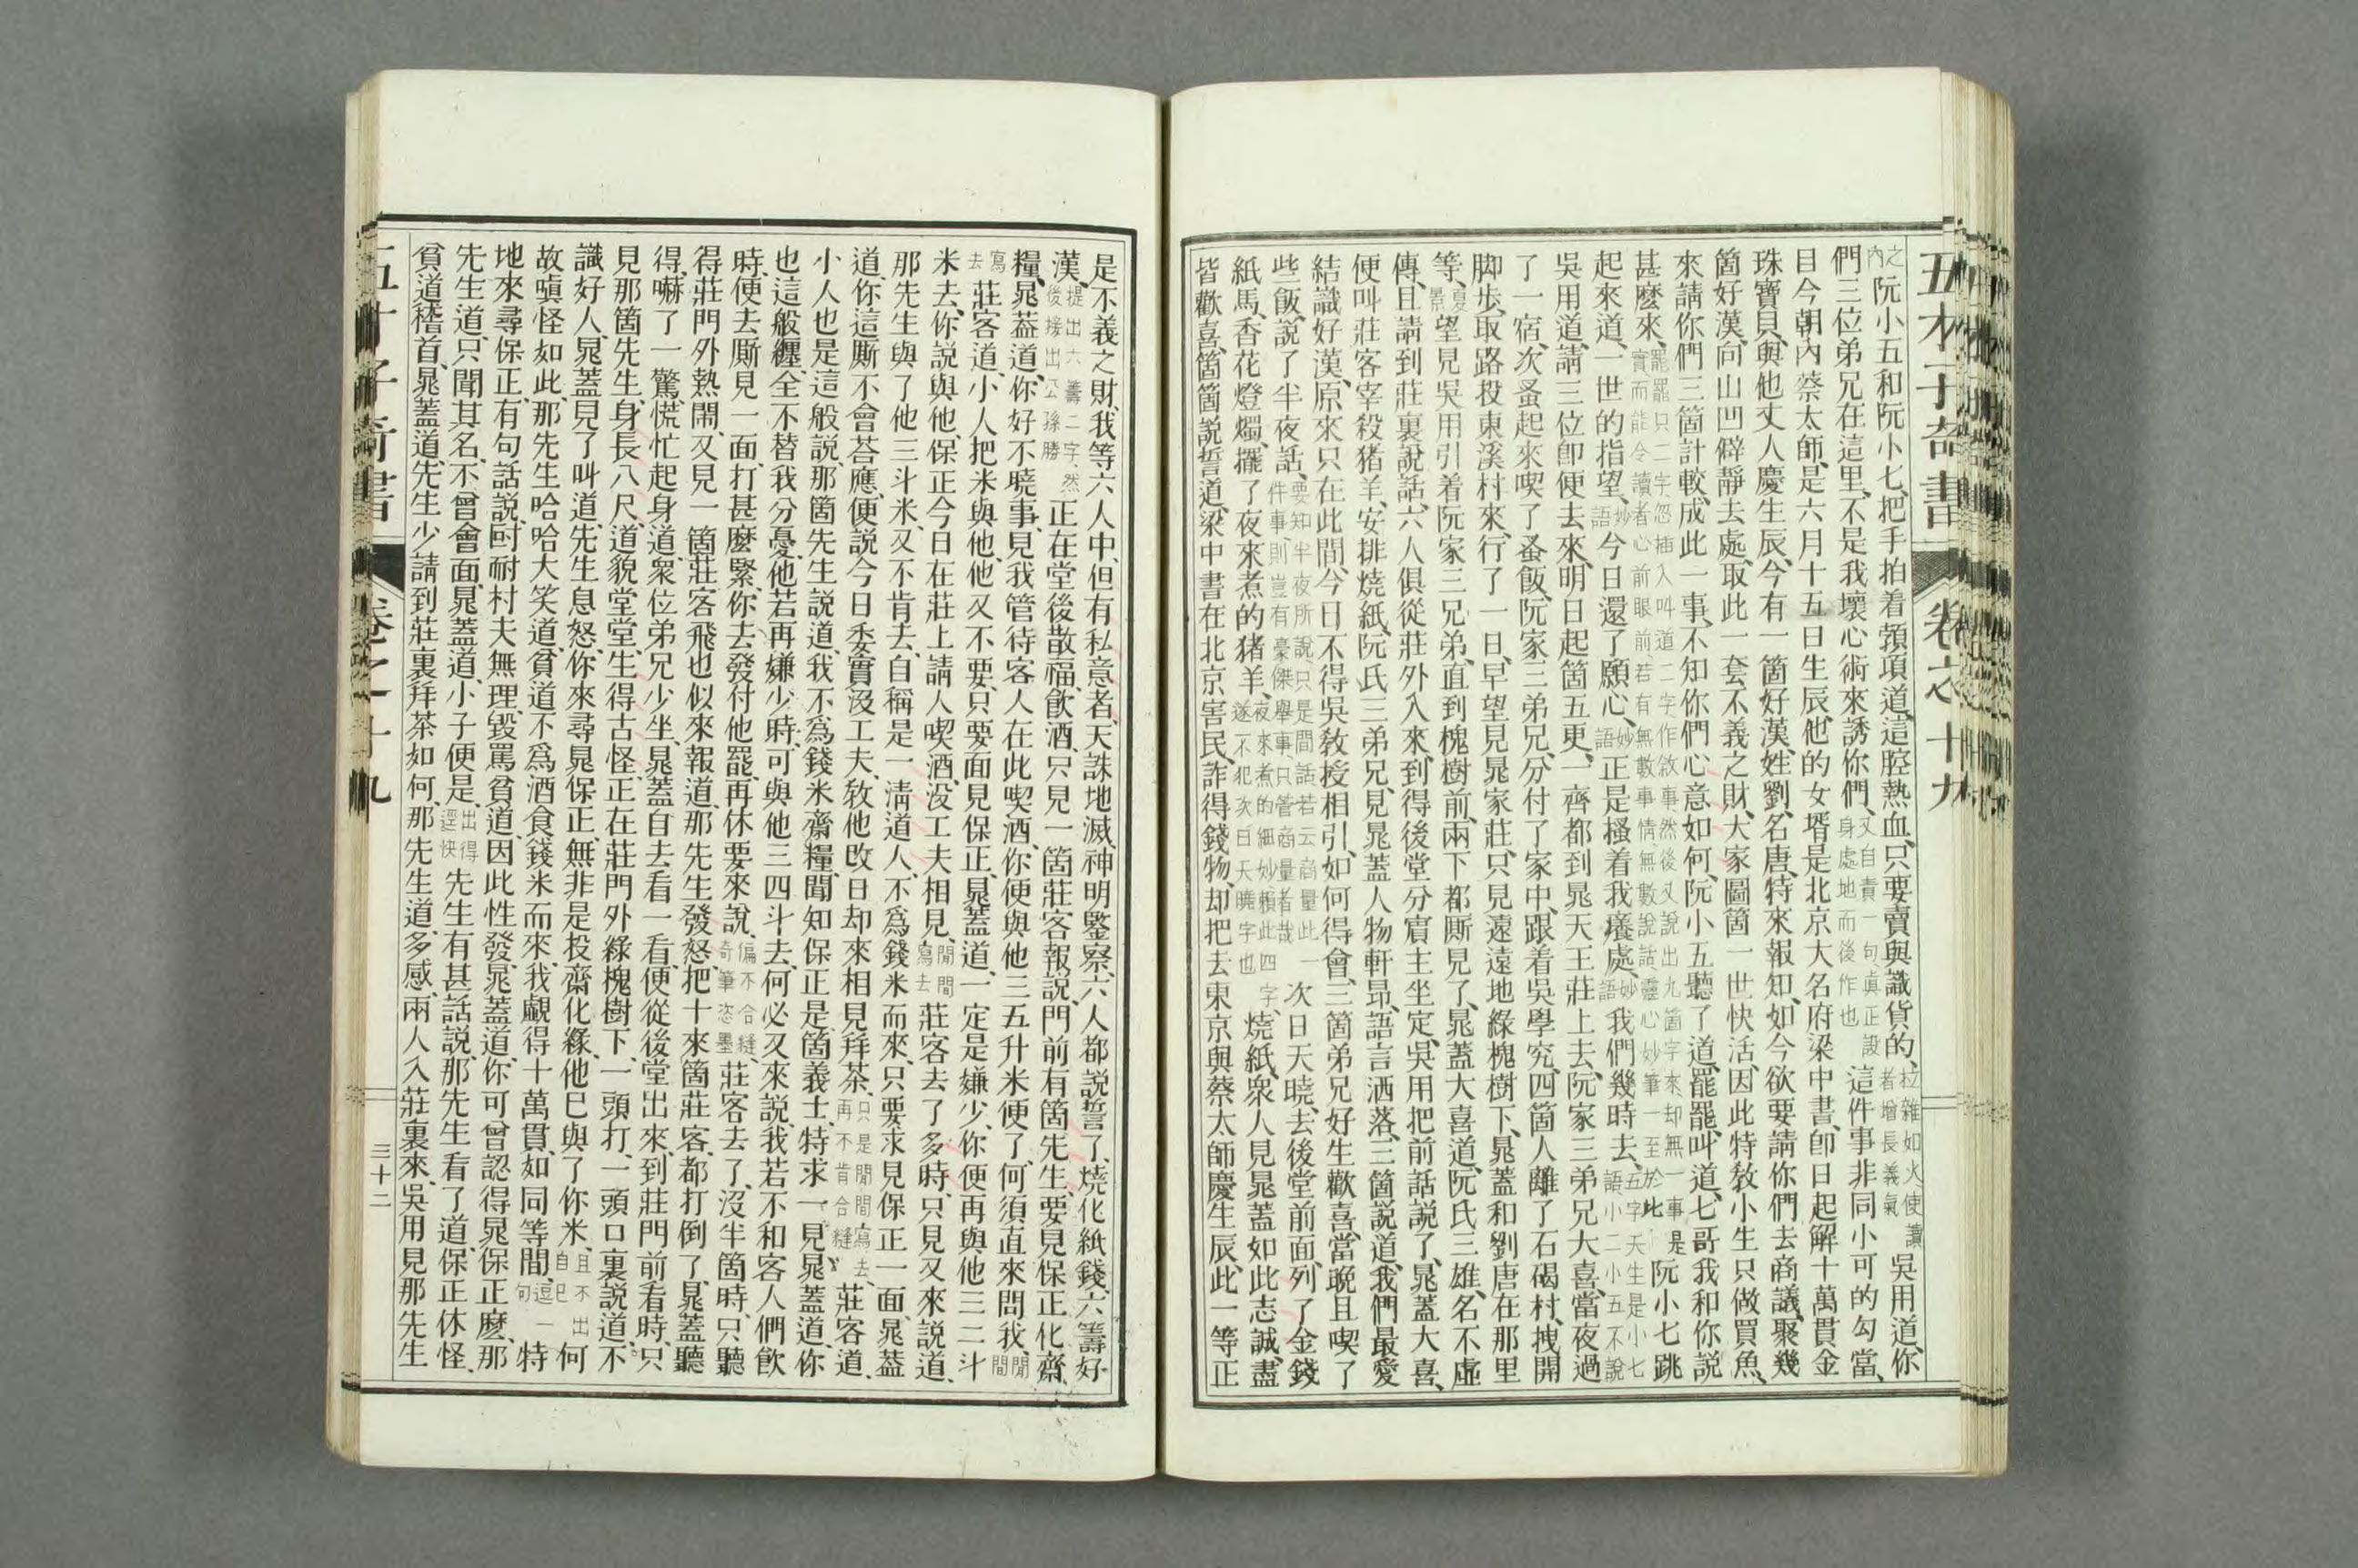 五才子奇書 卷之十九
之內阮小五和阮小七把手拍着頸項道、這腔熱血、只要賣與識貨的、拉雜如火使讀者增長義氣吳用道、你
們三位弟兄在這里、不是我壞心術來誘你們、又自責一句、眞正設身處地而後作也這件事非同小可的勾當、
目今朝內蔡太師、是六月十五日生辰、他的女壻是北京大名府梁中書、卽日起解十萬貫金
珠寶貝、與他丈人慶生辰、今有一箇好漢、姓劉、名唐、特來報知、如今欲要請你們去商議、聚幾
箇好漢、向山凹僻靜去處、取此一套不義之財、大家圖箇一世快活、因此特敎小生只做買魚、
來請你們三箇計較、成此一事、不知你們心意如何、阮小五聽了道、罷罷、叫道、七哥我和你說
甚麼來、罷罷只二字、忽插入叫道二字、作敘事、然後又說出九箇字來、却無一事是實、而能令讀者心前眼前、若有無數事情、無數說話、靈心妙筆一至於此阮小七跳
起來道、一世的指望、妙語今日還了願心、妙語正是搔着我癢處、妙語我們幾時去、五字天生是小七語、小二小五不說
吳用道、請三位卽便去來、明日起箇五更、一齊都到晁天王莊上去、阮家三弟兄大喜、當夜過
了一宿、次蚤起來喫了蚤飯、阮家三弟兄、分付了家中、跟着吳學究、四箇人離了石碣村、拽開
脚步、取路投東溪村來、行了一日、早望見晁家莊、只見遠遠地綠槐樹下、晁蓋和劉唐在那里
等、夏景望見吳用引着阮家三兄弟、直到槐樹前、兩下都厮見了、晁蓋大喜道、阮氏三雄、名不虛
傳、且請到莊裏說話、六人俱從莊外入來、到得後堂分賓主坐定、吳用把前話說了、晁蓋大喜、
便叫莊客宰殺猪羊、安排燒紙、阮氏三弟兄、見晁蓋人物軒昂、語言洒落、三箇說道、我們最愛
結識好漢、原來只在此間、今日不得吳敎授相引、如何得會、三箇弟兄好生歡喜、當晚且喫了
些飯、說了半夜話、要知半夜所說、只是閒話、若云商量此一件事、則豈有豪傑舉事只管商量者哉次日天曉、去後堂前面、列了金錢
紙馬、香花燈燭、擺了夜來煮的猪羊、夜來煮的細妙、賴此四字、遂不犯次日天曉字也燒紙、衆人見晁蓋如此志誠、盡
皆歡喜、箇箇說誓道、梁中書在北京害民、詐得錢物、却把去東京與蔡太師慶生辰、此一等正
是不義之財、我等六人中、但有私意者、天誅地滅、神明鑒察、六人都說誓了、燒化紙錢、六籌好
漢、提出六籌二字、然後接出公孫勝正在堂後散福飮酒、只見一箇莊客報說、門前有箇先生、要見保正化齋
糧、晁葢道、你好不曉事、見我管待客人在此喫酒、你便與他三五升米便了、何須直來問我、閒閒
寫去莊客道、小人把米與他、他又不要、只要面見保正、晁蓋道、一定是嫌少、你便再與他三二斗
米去、你說與他、保正今日在莊上請人喫酒、没工夫相見、閒閒寫去莊客去了多時、只見又來說道、
那先生與了他三斗米、又不肯去、自稱是一淸道人、不爲錢米而來、只要求見保正一面、晁葢
道、你這厮不會荅應、便說今日委實没工夫、敎他改日却來相見拜茶、只是閒閒寫去、再不肯合縫莊客道、
小人也是這般說、那箇先生說道、我不爲錢米齋糧、聞知保正是箇義士、特求一見、晁葢道、你
也這般纒、全不替我分憂、他若再嫌少時、可與他三四斗去、何必又來說、我若不和客人們飮
時、便去厮見一面、打甚麼緊、你去發付他罷、再休要來說、偏不合縫、奇筆恣墨莊客去了、沒半箇時、只聽
得莊門外熱鬧、又見一箇莊客飛也似來報道、那先生發怒、把十來箇莊客、都打倒了、晁蓋聽
得、嚇了一驚、慌忙起身道、衆位弟兄少坐、晁蓋自去看一看、便從後堂出來、到莊門前看時、只
見那箇先生、身長八尺、道貌堂堂、生得古怪、正在莊門外綠槐樹下、一頭打、一頭口裏說道、不
識好人、晁蓋見了叫道、先生息怒、你來尋晁保正、無非是投齋化緣、他已與了你米、且不出自己何
故嗔怪如此、那先生哈哈大笑道、貧道不爲酒食錢米而來、我覷得十萬貫、如同等間、逗一句特
地來尋保正、有句話說、叵耐村夫無理、毀罵貧道、因此性發、晁蓋道、你可曾認得晁保正麼、那
先生道、只聞其名、不曾會面、晁蓋道、小子便是、出得逕快先生有甚話說、那先生看了道、保正休怪、
貧道稽首、晁蓋道、先生少請到莊裏拜茶如何、那先生道、多感、兩人入莊裏來、吳用見那先生
五才子奇書 卷之十九 三十二